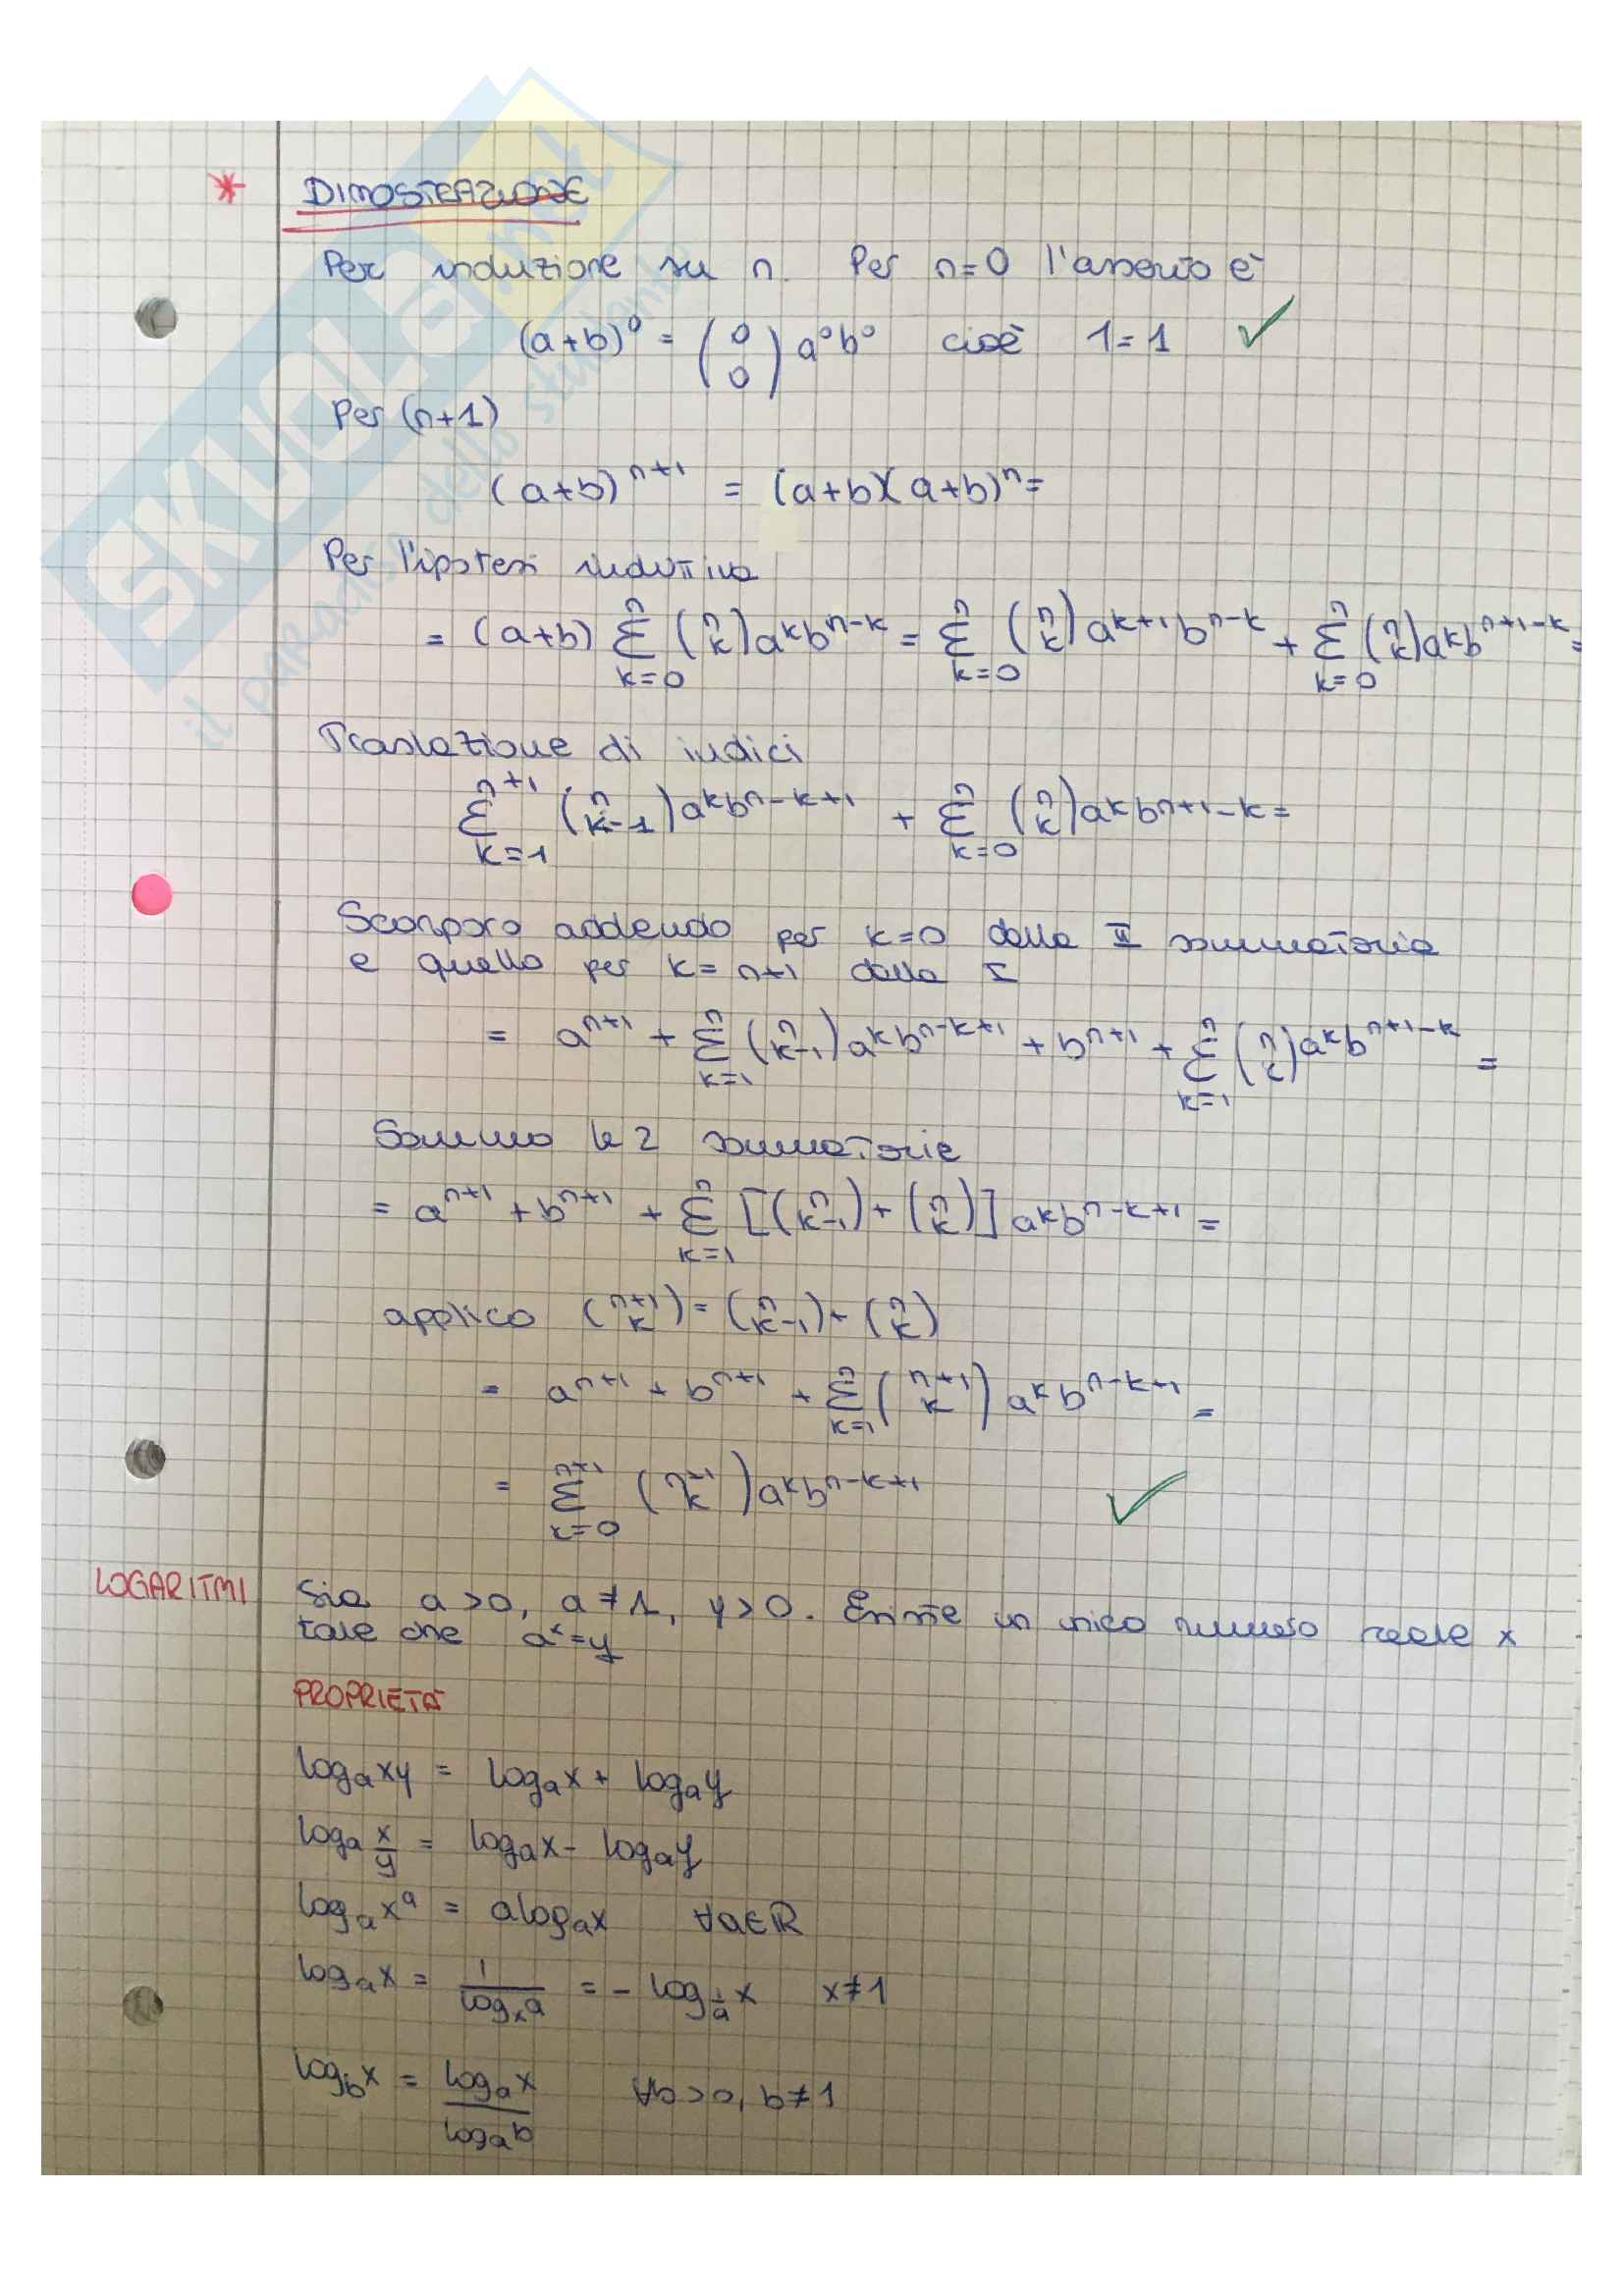 * DIMOSTRAZIONE
Per induzione su n. Per n=0 l'asserto è
(a+b)⁰ = (0 0) a⁰b⁰ cioè 1=1 ✓
Per (n+1)
(a+b)ⁿ⁺¹ = (a+b)(a+b)ⁿ=
Per l'ipotesi induttiva
= (a+b) Σ_{k=0}^{n} (n k) a^k b^{n-k} = Σ_{k=0}^{n} (n k) a^{k+1} b^{n-k} + Σ_{k=0}^{n} (n k) a^k b^{n+1-k} =
Traslazione di indici
Σ_{k=1}^{n+1} (n k-1) a^k b^{n-k+1} + Σ_{k=0}^{n} (n k) a^k b^{n+1-k} =
Scorporo addendo per k=0 dalla II sommatoria
e quello per k=n+1 dalla I
= a^{n+1} + Σ_{k=1}^{n} (n k-1) a^k b^{n-k+1} + b^{n+1} + Σ_{k=1}^{n} (n k) a^k b^{n+1-k} =
Sommo le 2 sommatorie
= a^{n+1} + b^{n+1} + Σ_{k=1}^{n} [(n k-1) + (n k)] a^k b^{n-k+1} =
applico (n+1 k) = (n k-1) + (n k)
= a^{n+1} + b^{n+1} + Σ_{k=1}^{n} (n+1 k) a^k b^{n-k+1} =
= Σ_{k=0}^{n+1} (n+1 k) a^k b^{n-k+1} ✓
LOGARITMI Sia a>0, a≠1, y>0. Esiste un unico numero reale x
tale che a^x=y
PROPRIETÀ
log_a xy = log_a x + log_a y
log_a x/y = log_a x - log_a y
log_a x^a = a log_a x ∀a∈ℝ
log_a x = 1/log_x a = - log_{1/a} x x≠1
log_b x = log_a x / log_a b ∀b>0, b≠1
SKUOLA.net
il paradiso dello studente